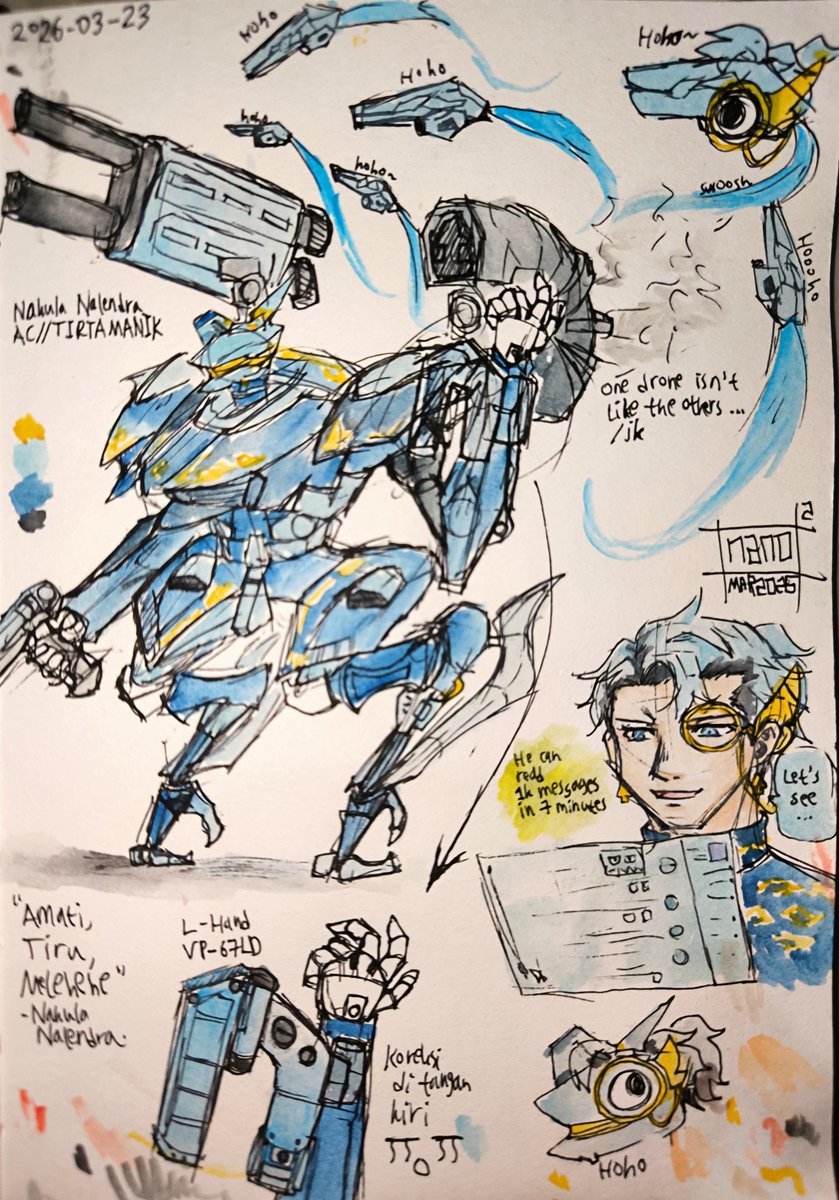 2026-03-23
Hoho
Hoho
Hoho~
hoho
hoho~
swoosh
Hoooho
Nakula Nalendra
AC//TIRTAMANIK
one drone isn't
like the others...
/jk
nano
MAR2026
He can
read
1k messages
in 7 minutes
Let's
see
...
"Amati,
Tiru,
Melehehe"
-Nakula
Nalendra.
L-Hand
VP-67LD
Koreksi
di tangan
kiri
Hoho